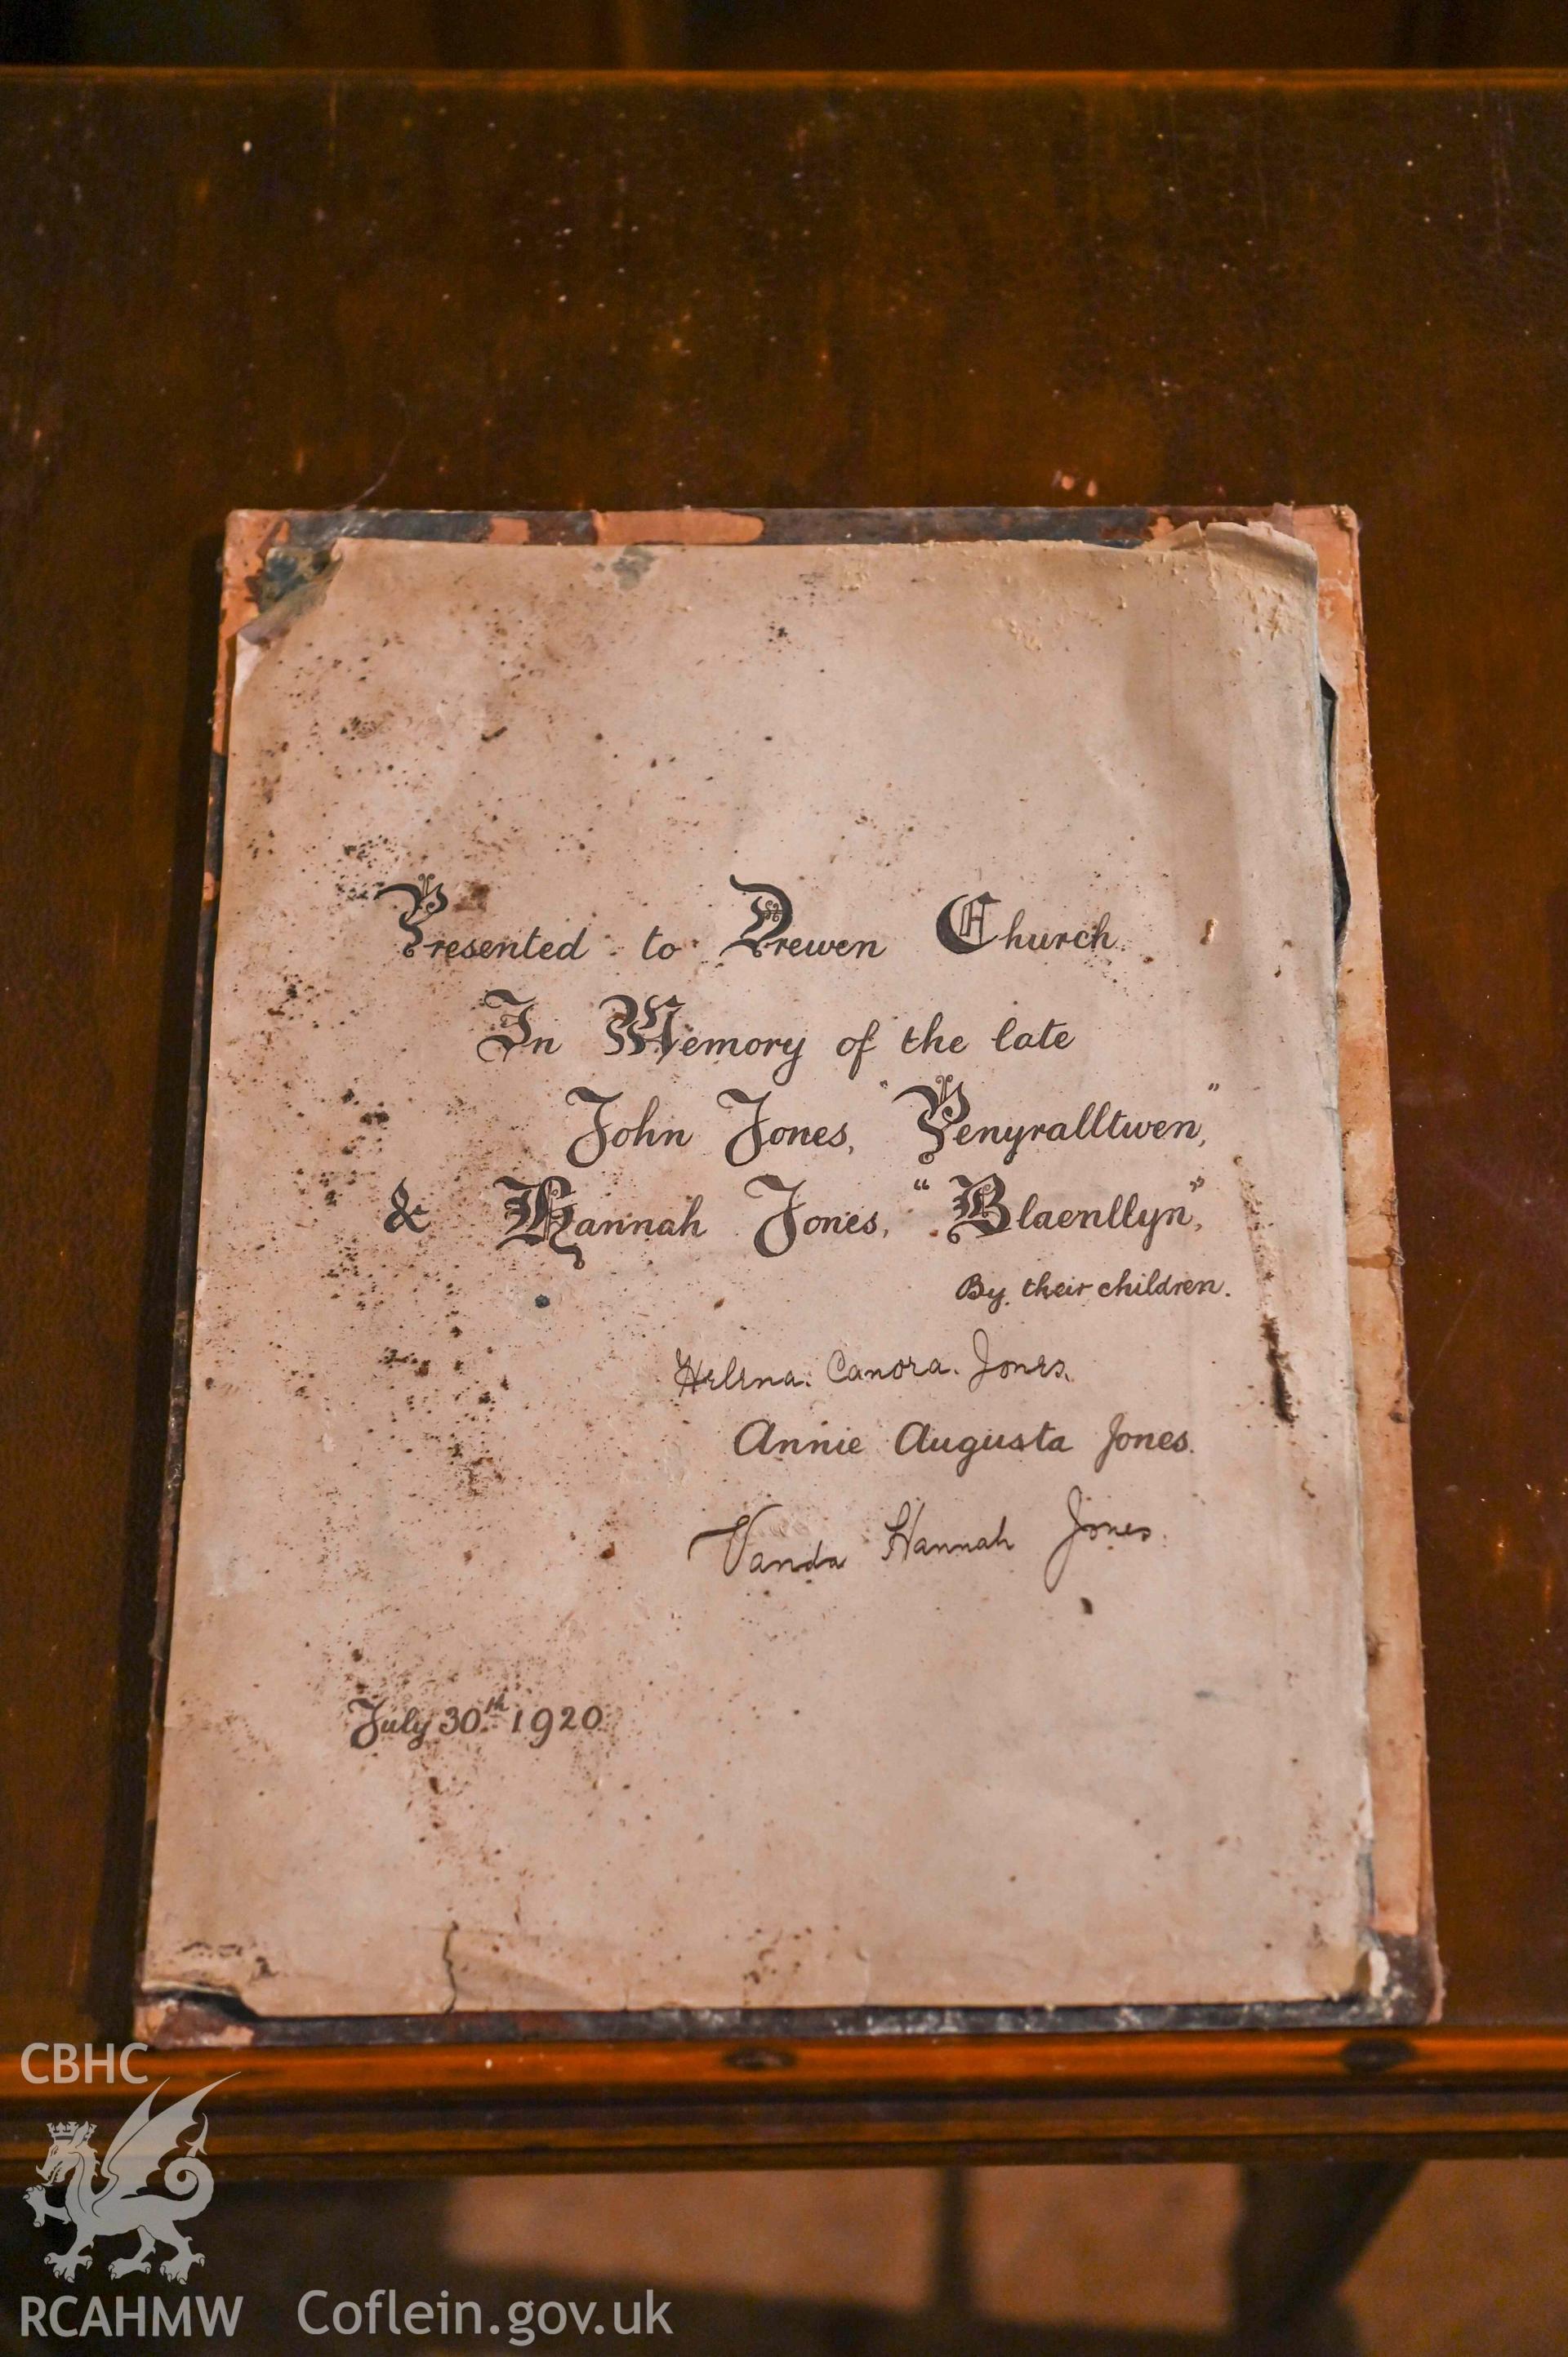 Presented to Drewen Church.
In Memory of the late
John Jones, "Penyralltwen",
& Hannah Jones, "Blaenllyn",
By their children.
Helena. Canora. Jones.
Annie Augusta Jones.
Vanda Hannah Jones.
July 30th 1920
CBHC
RCAHMW
Coflein.gov.uk